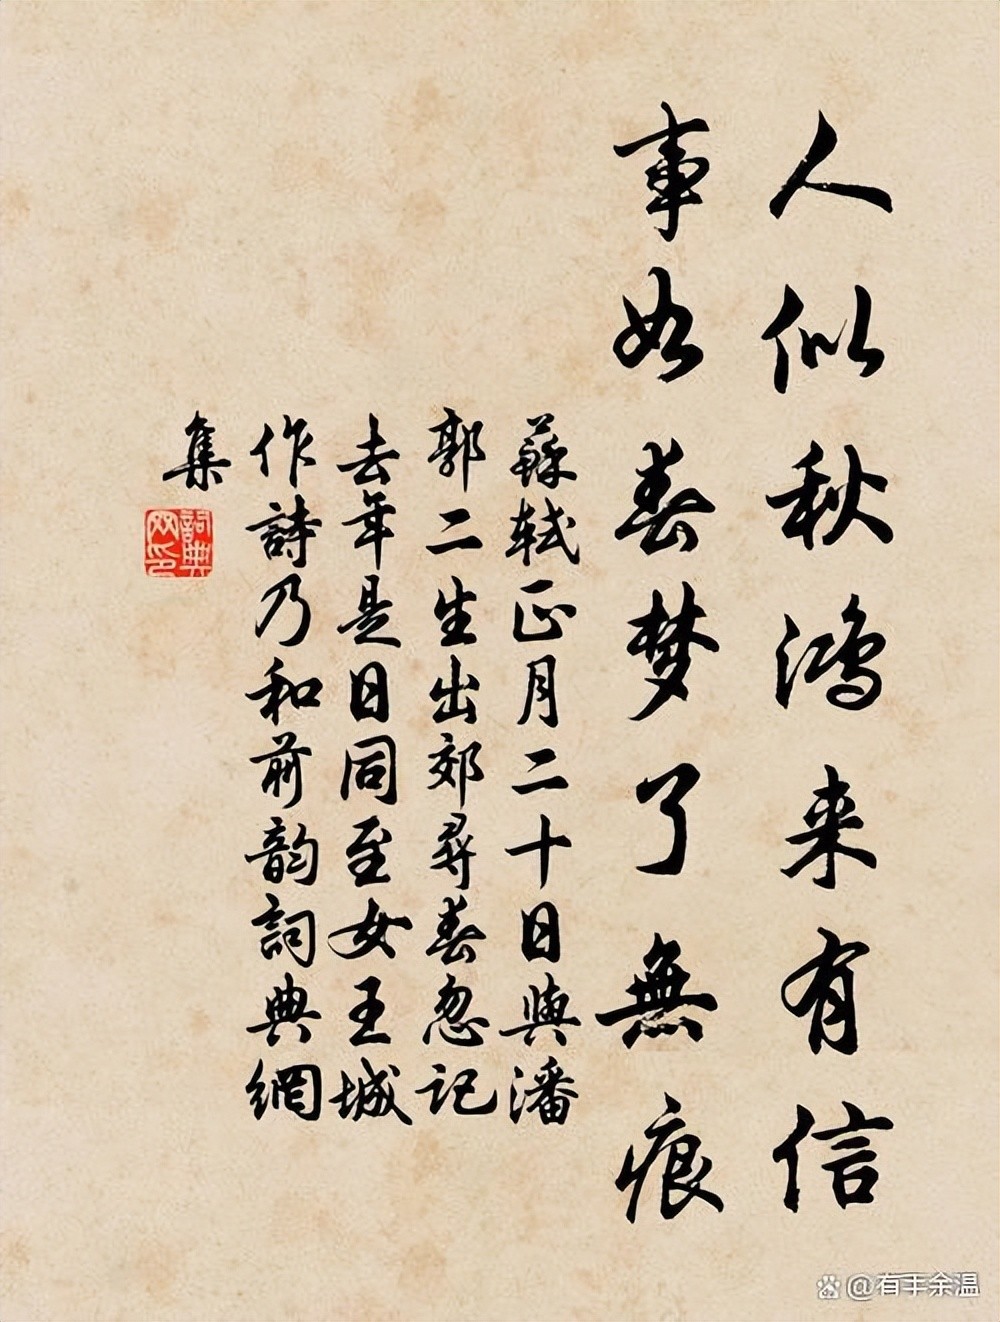 人似秋鴻来有信
事如春梦了無痕
蘇軾正月二十日與潘
郭二生出郊尋春忽记
去年是日同至女王城
作詩乃和前韵詞典網
集
詞典
网印
@有丰余温